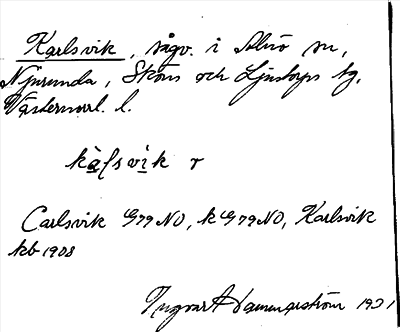 Karlsvik, sågv. i Alnö sn,
Njurunda, Sköns och Ljustorps tg,
Västernorrl. l.
kàlsvìk r
Carlsvik G79 NO, k G79 NO, Karlsvik
kb 1908
Ingvar Hammarström 1931